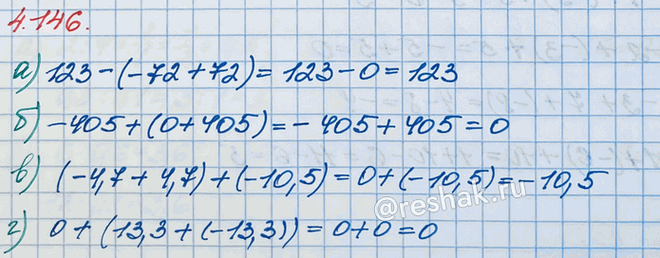 4.146.
а) 123-(-72+72)=123-0=123
б) -405+(0+405)=-405+405=0
в) (-4,7+4,7)+(-10,5)=0+(-10,5)=-10,5
@reshak.ru
г) 0+(13,3+(-13,3))=0+0=0